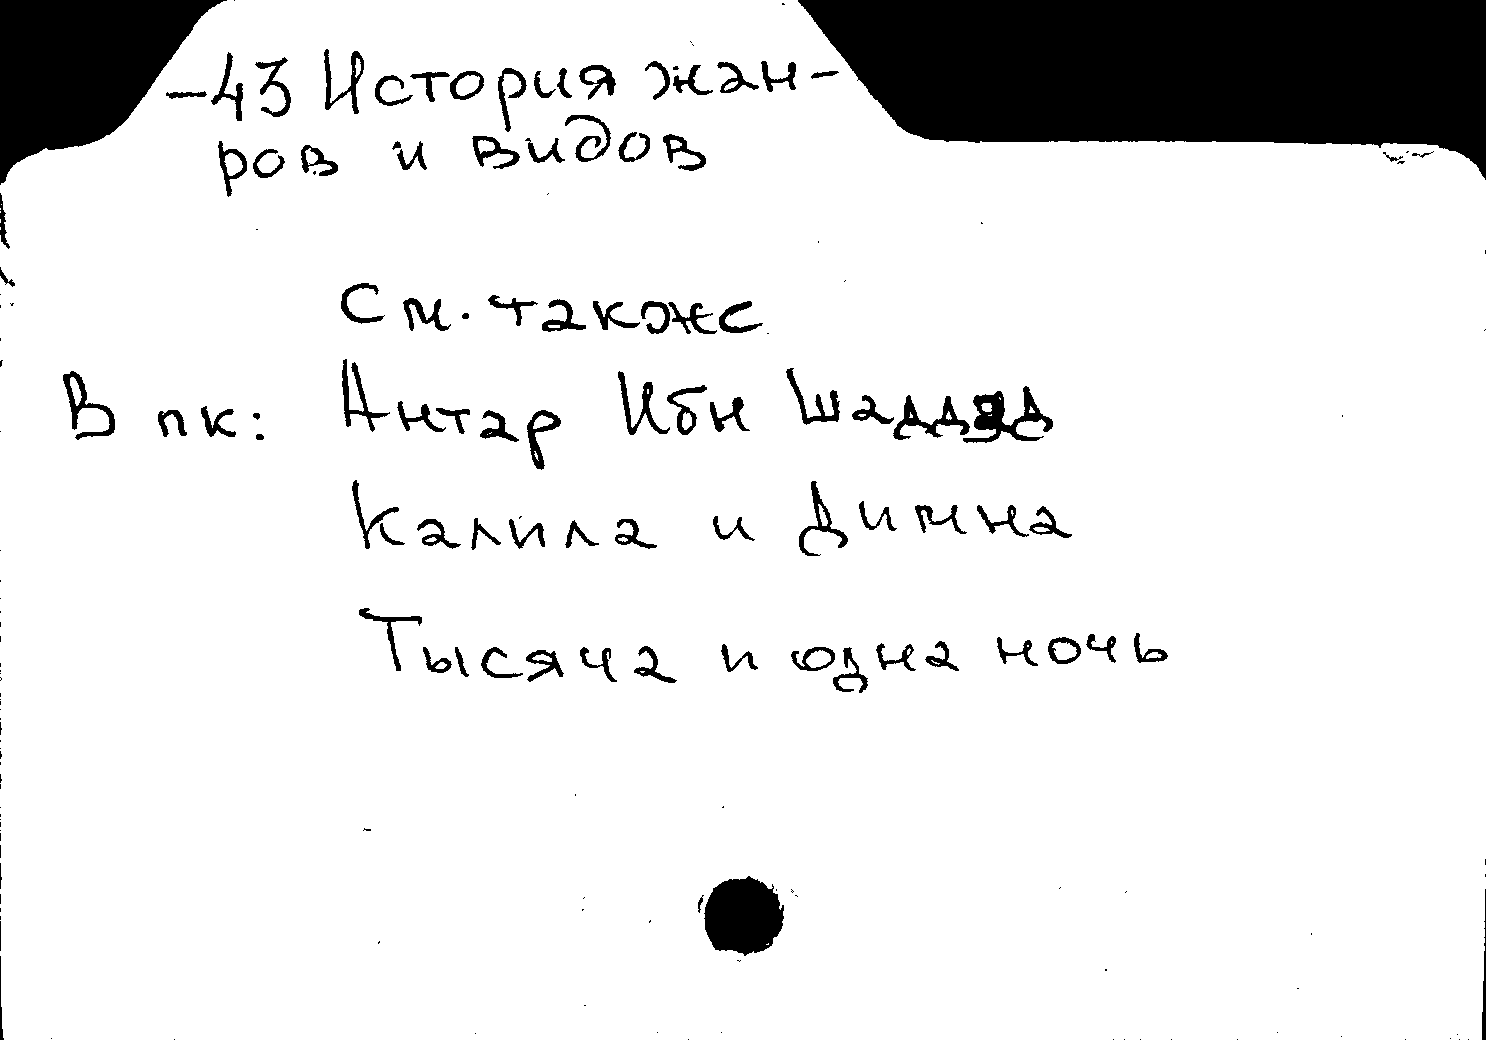 -43 История жан-
ров и видов
См. также
В пк: Антар Ибн Шаддад
Калила и Димна
Тысяча и одна ночь